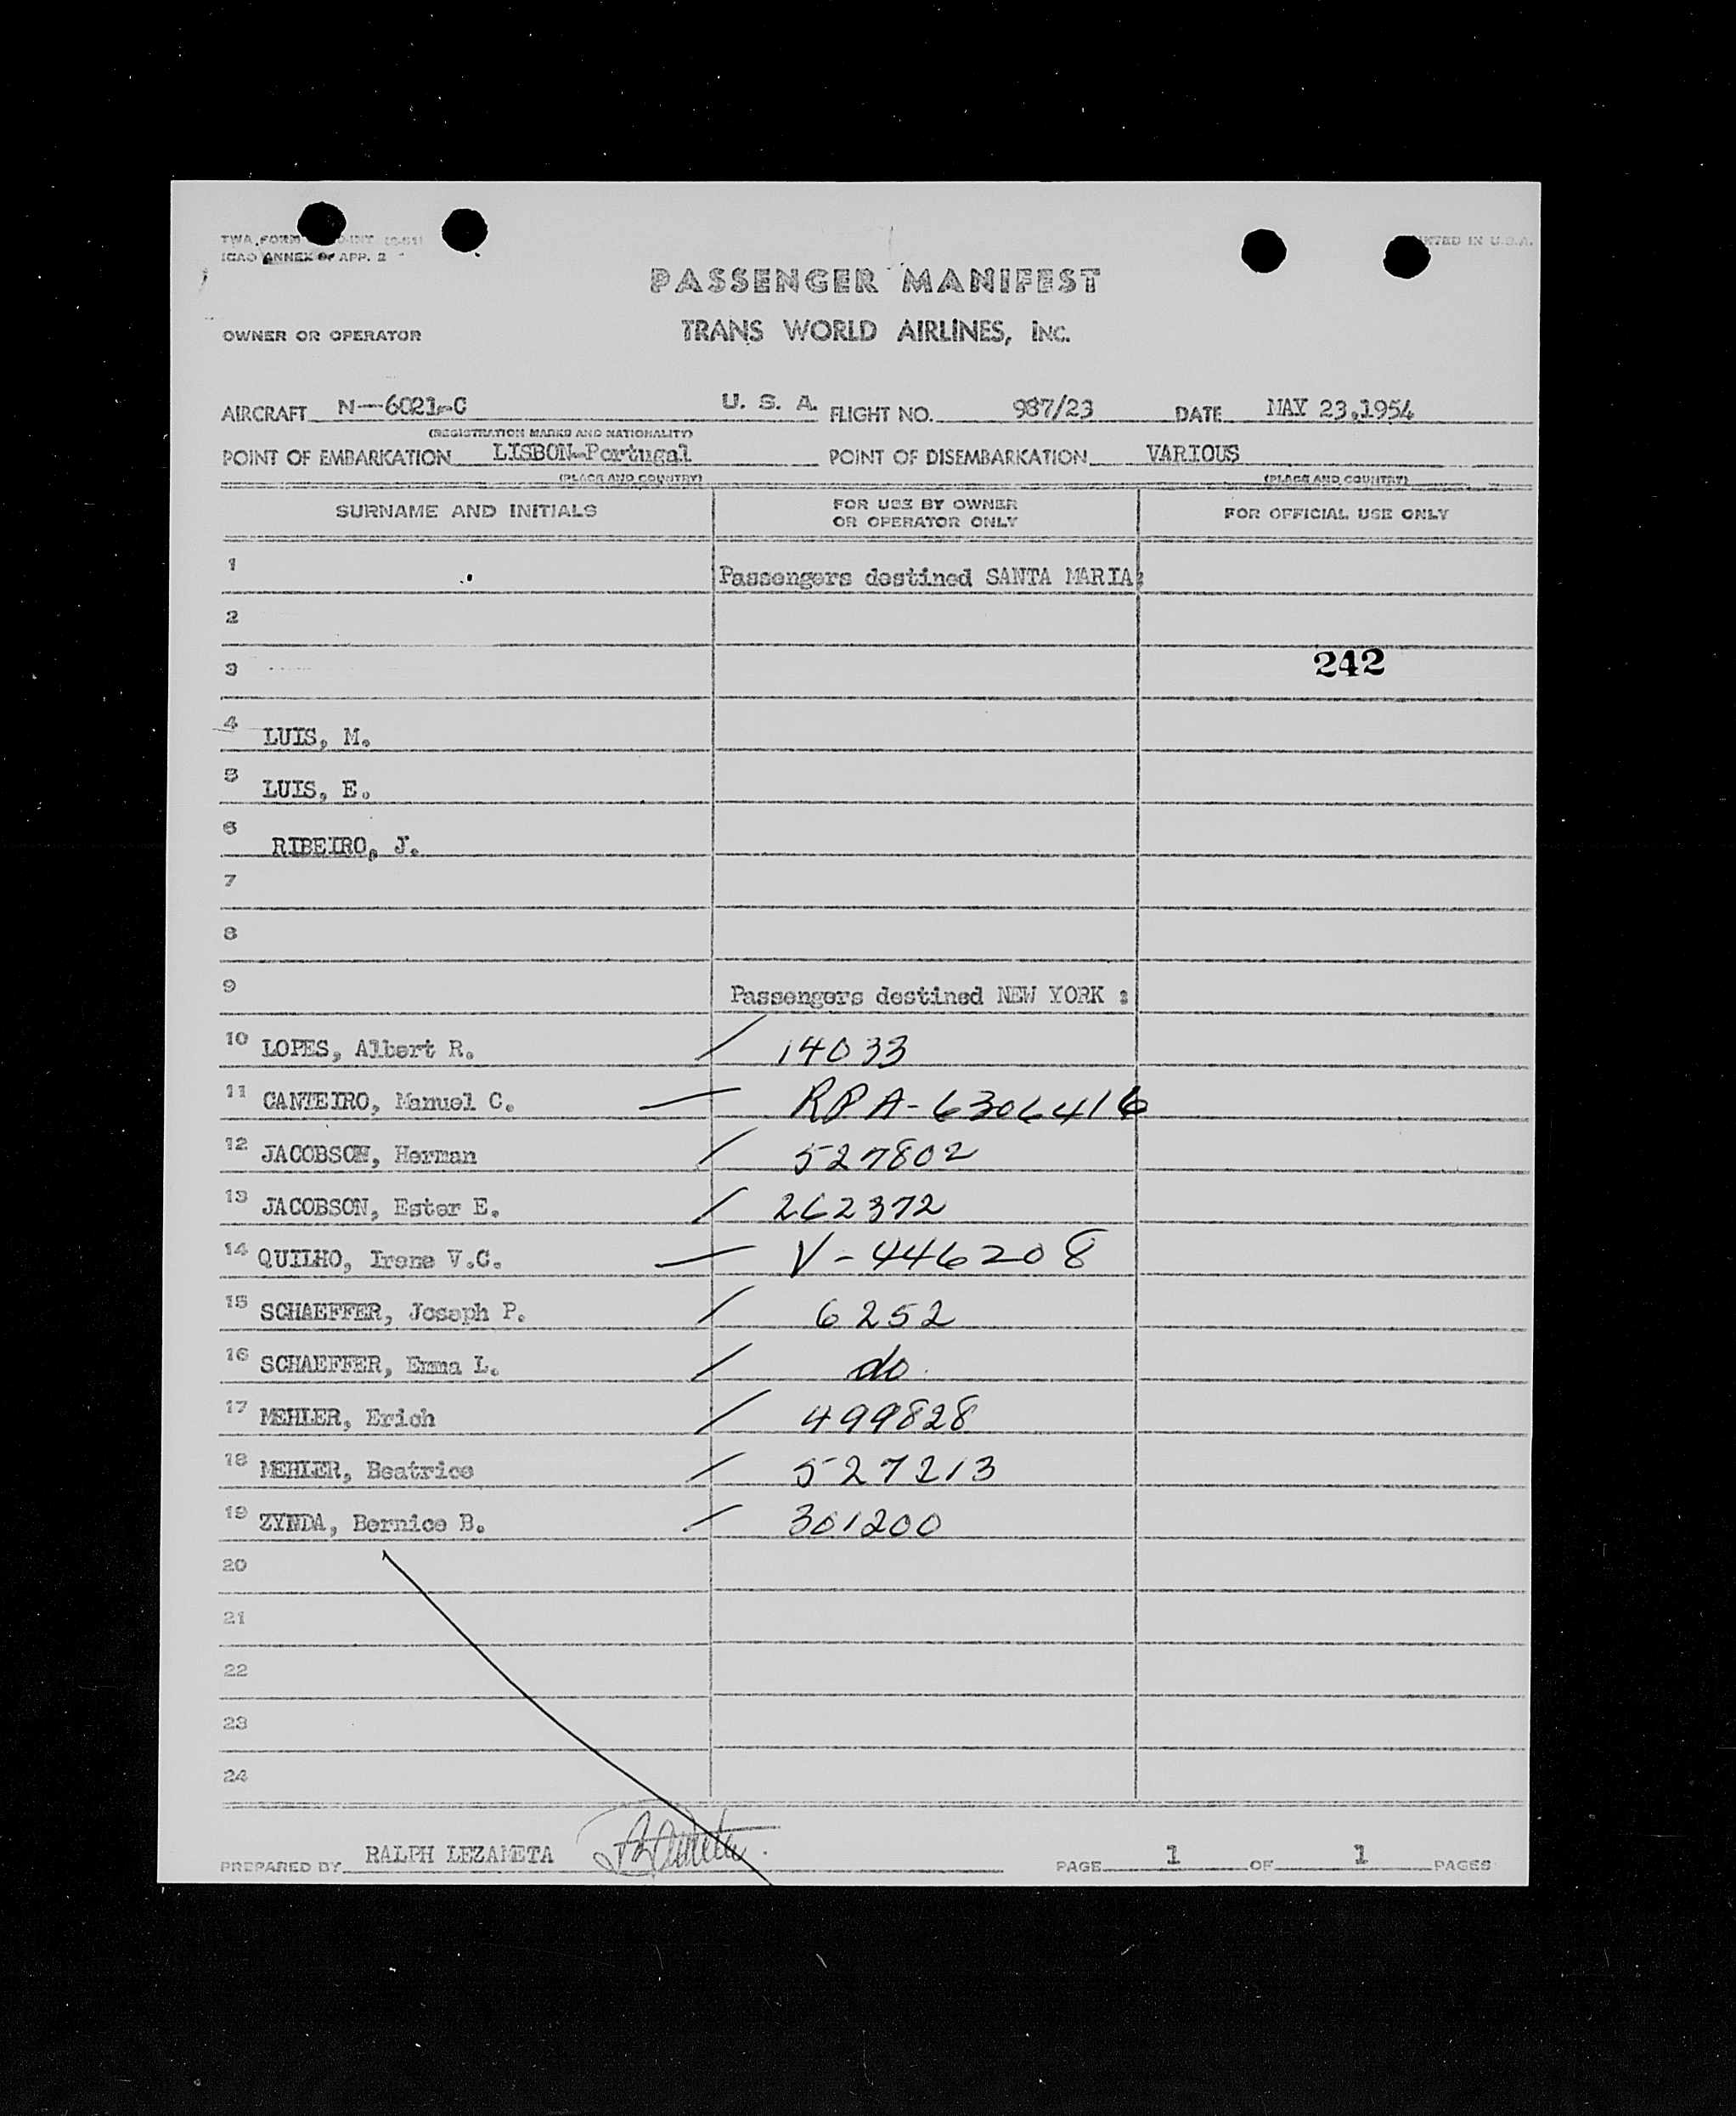 TWA FORM
ICAO ANNEX 9 APP. 2
U.S.A.
PASSENGER MANIFEST
OWNER OR OPERATOR TRANS WORLD AIRLINES, INC.
AIRCRAFT N--6021-C U. S. A. FLIGHT NO. 987/23 DATE MAY 23,1954
(REGISTRATION MARKS AND NATIONALITY)
POINT OF EMBARKATION LISBON-Portugal POINT OF DISEMBARKATION VARIOUS
(PLACE AND COUNTRY) (PLACE AND COUNTRY)
SURNAME AND INITIALS FOR USE BY OWNER OR OPERATOR ONLY FOR OFFICIAL USE ONLY
1 Passengers destined SANTA MARIA:
2
3 242
4 LUIS, M.
5 LUIS, E.
6 RIBEIRO, J.
7
8
9 Passengers destined NEW YORK :
10 LOPES, Albert R. / 14033
11 CANTEIRO, Manuel C. — RPA-6306416
12 JACOBSON, Herman / 527802
13 JACOBSON, Ester E. / 262372
14 QUILHO, Irene V.C. — V-446208
15 SCHAEFFER, Joseph P. / 6252
16 SCHAEFFER, Emma L. / do.
17 MEHLER, Erich / 499828
18 MEHLER, Beatrice / 527213
19 ZYNDA, Bernice B. / 301200
20
21
22
23
24
PREPARED BY RALPH LEZAMETA PAGE 1 OF 1 PAGES